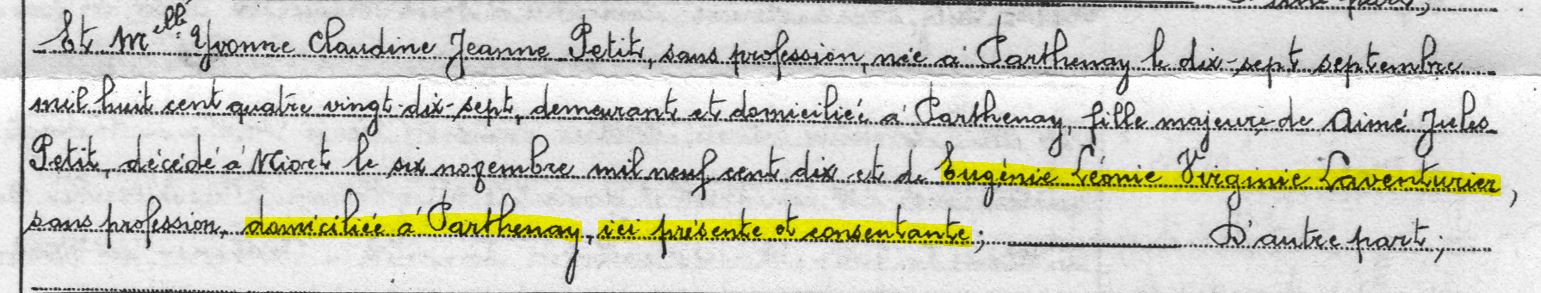 Et Melle Yvonne Claudine Jeanne Petit, sans profession, née à Parthenay le dix-sept septembre
mil huit cent quatre vingt-dix-sept, demeurant et domiciliée à Parthenay, fille majeure de Aimé Jules
Petit, décédé à Niort le six novembre mil neuf cent dix et de Eugénie Léonie Virginie Laventurier,
sans profession, domiciliée à Parthenay, ici présente et consentante; D'autre part;